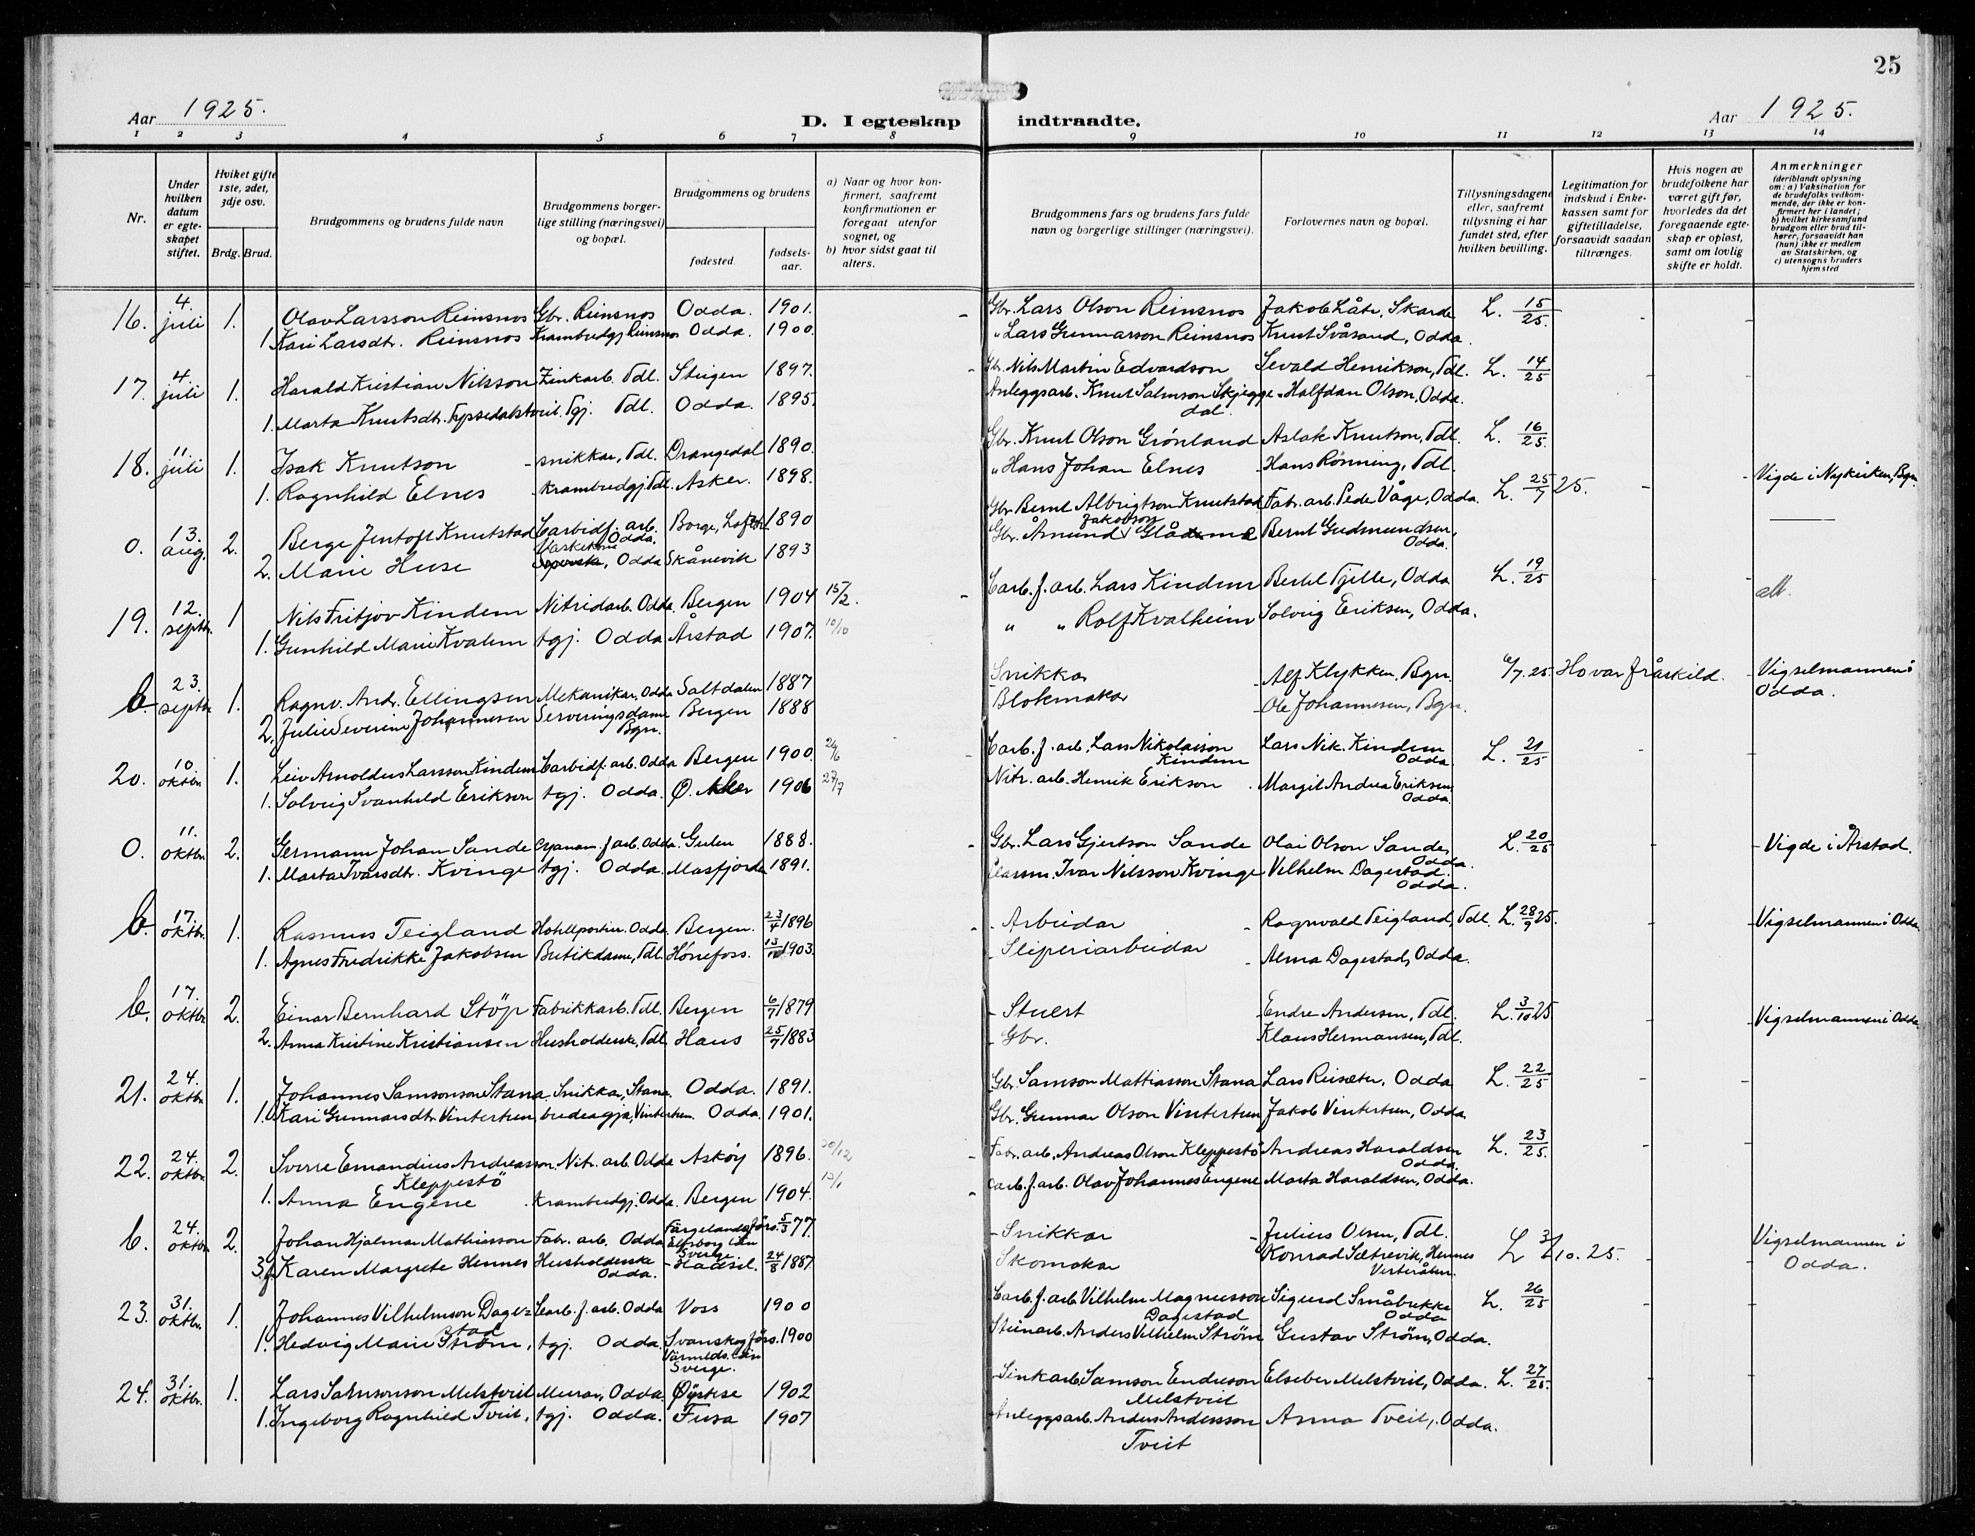 25
Aar 1925.
D. I egteskap indtraadte.
Aar 1925.
1 2 3 4 5 6 7 8 9 10 11 12 13 14
Nr.
Under hvilken datum er egteskapet stiftet.
Hviket gifte 1ste, 2det, 3dje osv.
Brdg. Brud.
Brudgommens og brudens fulde navn
Brudgommens borgerlige stilling (næringsvei) og bopæl.
Brudgommens og brudens
fødested. fødselsaar.
a) Naar og hvor konfirmert, saafremt konfirmationen er foregaat utenfor sognet, og
b) hvor sidst gaat til alters.
Brudgommens fars og brudens fars fulde navn og borgerlige stillinger (næringsvei).
Forlovernes navn og bopæl.
Tillysningsdagene eller, saafremt tillysning ei har fundet sted, efter hvilken bevilling.
Legitimation for indskud i Enkekassen samt for giftetilladelse, forsaavidt saadan tiltrænges.
Hvis nogen av brudefolkene har været gift før, hvorledes da det foregaaende egteskap er opløst, samt om lovlig skifte er holdt.
Anmerkninger (deriblandt oplysning om: a) Vaksination for de brudefolks vedkommende, der ikke er konfirmert her i landet; b) hvilket kirkesamfund brudgom eller brud tilhører, forsaavidt han (hun) ikke er medlem av Statskirken, og c) utensogns bruders hjemsted
16. 4. juli 1. Olav Larsson Reinsnos Gbr. Reinsnos Odda. 1901. Gbr. Lars Olson Reinsnos Jakob Låte, Skarde L. 15/25.
1. Kari Larsdtr. Reinsnos Krambudgj Reinsnos Odda. 1900. " Lars Gunnarson Reinsnos Knut Svåsand, Odda.
17. 4. juli 1. Harald Kristian Nilsson Zinkarb. Tdl. Steigen 1897. Gbr. Nils Martin Edvardson Sevald Henrikson, Tdl. L. 14/25
1. Marta Knutsdtr. Tyssedalstveit. Tgj. Tdl. Odda. 1895. Anleggsarb. Knut Salmson Skjeggedal. Halfdan Olson, Odda.
18. 11. juli 1. Isak Knutson snikkar, Tdl. Drangedal 1890. Gbr. Knut Olson Grönland Aslak Knutson, Tdl. L. 16/25.
1. Ragnhild Elnes Krambudgj Tdl. Asker. 1898. " Hans Johan Elnes Hans Rönning, Tdl.
0. 13. aug. 2. Berge Jentoft Knutstad Carbidf. arb. Odda. Borge, Lofot 1890 Gbr. Bernt Albrigtson Knutstad Fab. arb. Pede Våge, Odda. L. 25/7 25. Vigde i Nykirken, Bgn.
2. Marie Huse Vaskekone, Odda Skånevik 1893 Gbr. Åmund Jakobson Bernt Gudmundsen, Odda.
19. 12. septbr. 1 Nils Fritjov Kindem Nitridarb. Odda Bergen 1904 15/2. Carb. f. arb. Lars Kindem Bertel Tjelle, Odda L. 19/25
1. Gunhild Marie Kvalem tgj. Odda Årstad 1907. 10/10 " " Rolf Kvalheim Solveig Eriksen, Odda.
b. 23. septbr 1. Ragnv. Andr. Ellingsen Mekanikar, Odda Saltdalen 1887 Snikkar Alf Klykken, Bgn. 6/7. 25. Ho var fråskild. Vigselmannen i Odda.
2. Julie Severine Johannesen Serveringsdame Bgn. Bergen 1888 Blokmakar Ole Johannesen, Bgn.
20. 10. oktbr. 1. Leiv Arnoldus Larsson Kindem Carbidf. arb. Odda Bergen 1900. 24/6 Carb. f. arb. Lars Nikolaison Kindem Lars Nik. Kindem Odda. L. 21/25
1. Solveig Svanhild Erikson tgj. Odda. Ø. Aker 1906 27/7 Nitr. arb. Henrik Erikson Margit Andrea Eriksen. Odda.
0. 11. oktbr. 2. Germann Johan Sande Cyanam. f arb. Odda. Gulen 1888. Gbr. Lars Gjertson Sande Olai Olson Sande, Odda. L. 20/25 Vigde i Årstad.
1. Marta Ivarsdtr. Kvinge tgj. Odda. Masfjorden 1891. Ivar Nilsson Kvinge Vilhelm Dagestad. Odda.
b. 17. oktbr. 1. Rasmus Teigland Hotellportier. Odda. Bergen. 23/4 1896 Arbeidar Ragnvald Teigland, Tdl. L. 28/9 25. Vigselmannen i Odda.
1. Agnes Fredrikke Jakobsen Butikdame, Tdl. Hönefoss. 13/10 1903. Sliperiarbeidar Alma Dagestad, Odda.
b. 17. oktbr. 2. Einar Bernhard Stöp Fabrikkarb. Tdl. Bergen 6/7 1879 Stuert Endre Andersen, Tdl. L. 3/10 25 Vigselmannen i Odda.
2. Anna Kristine Kristiansen Husholderske, Tdl. Haus 25/7 1883 Gbr. Klaus Hermansen, Tdl.
21. 24. oktbr. 1. Johannes Samsonson Stana Snikkar, Stana. Odda. 1891. Gbr. Samson Mattiasson Stana Lars Reisæter, Odda L. 22/25
1. Kari Gunnarsdtr. Vintertun, budeagja, Vintertun. Odda. 1901. Gbr. Gunnar Olson Vintertun Jakob Vintertun, Odda
22. 24. oktbr. 2. Sverre Emandius Andreasson Kleppestö Nitr. arb. Odda Asköy 1896. 20/12 Fabr. arb. Andreas Olson Kleppestö Andreas Haraldsen Odda. L. 23/25.
1. Anna Engene Krambudgj. Odda. Bergen 1904. 13/1 Carb. f. arb. Olav Johannes Engene Marta Haraldsen, Odda.
b. 24. oktbr 2. Johan Hjalmar Mathiasson Fabr. arb. Odda Färgelandsförs. Elfsborg län Sverge. 5/3 77. Snikkar Julius Olsen, Tdl. L 3/10. 25. Vigselmannen i Odda.
3. Karen Margrete Hennes Husholderske Odda. Hadsel. 24/8 1887 Skomakar Konrad Sætrevik, Hennes Vesterålen.
23. 31. oktbr. 1. Johannes Vilhelmson Dagestad Carb. f. arb. Odda Voss 1900 Carb. f. arb Vilhelm Magnusson Dagestad Sigurd Småbrekke Odda L. 26/25
1. Hedvig Marie Ström, tgj. Odda. Svanskog förs. Värmlds. län Sverge. 1900 Steinarb. Anders Vilhelm Ström Gustav Ström, Odda.
24. 31. oktbr. 1. Lars Samsonson Melstveit Murar, Odda. Øystese 1902 Sinkarb. Samson Endreson Melstveit Elseber Melstveit, Odda. L. 27/25.
1. Ingeborg Ragnhild Tveit, tgj. Odda. Fusa 1907 Anleggsarb. Anders Andersson Tveit Anna Tveit, Odda.